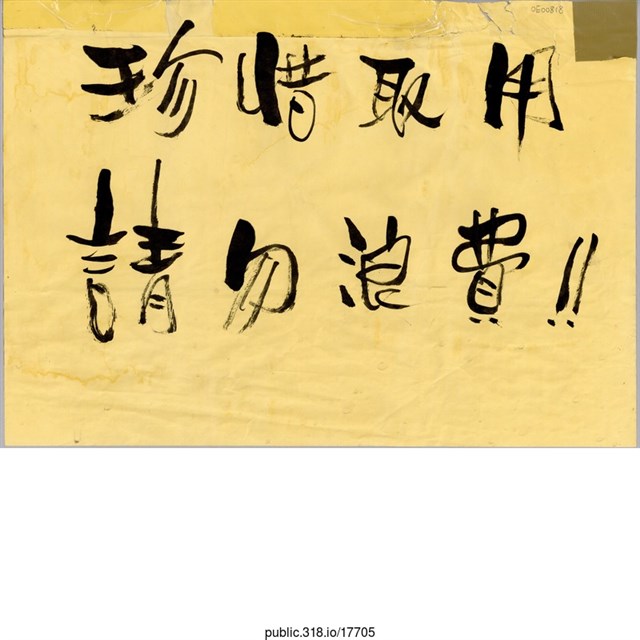 0600818
珍惜取用
請勿浪費!!
public.318.io/17705